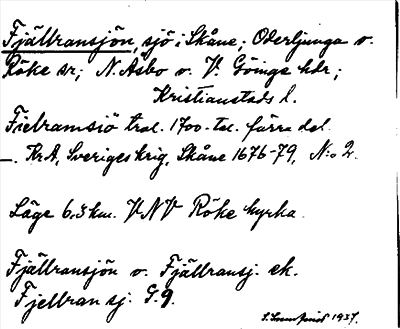 Fjällransjön, sjö i Skåne; Oderljunga o.
Röke sr; N. Åsbo o. V. Göinge hdr;
Kristianstads l.
Fielramsiö trol. 1700-tal. förra del
_ . Kr A, Sveriges krig, Skåne 1676-79, N:o 2.
Läge 6,3 km. VNV Röke kyrka.
Fjällransjön o. Fjällransj. ek.
Fjellran sj. G.9.
1937.